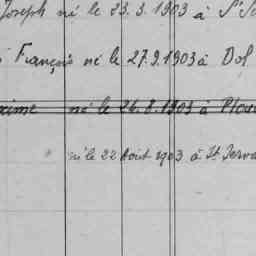 Joseph né le 23.3.1903 à St
François né le 27.9.1903 à Dol
né le 26.8.1903 à
né le 22 Août 1903 à St Serva